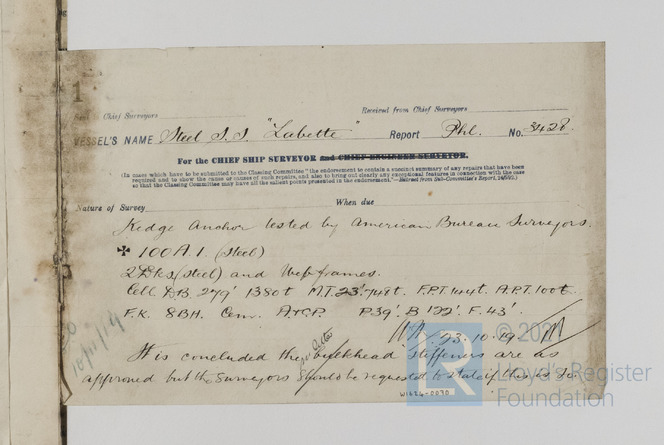 1
Sent to Chief Surveyors
Received from Chief Surveyors
VESSEL'S NAME Steel S.S. "Labette" Report Phl. No. 3428.
For the CHIEF SHIP SURVEYOR and CHIEF ENGINEER SURVEYOR.
(In cases which have to be submitted to the Classing Committee "the endorsement to contain a succinct summary of any repairs that have been
required and to show the cause or causes of such repairs, and also to bring out clearly any exceptional features in connection with the case
so that the Classing Committee may have all the salient points presented in the endorsement."
Nature of Survey When due
Kedge Anchor tested by American Bureau Surveyors.
✠ 100A.1. (Steel)
2 Dks (Steel) and Web frames.
Cell D.B. 279' 1380t M.T. 23' 748t. F.P.T. 144t. A.P.T. 100t.
F.K. 8BH. Cem. A&CP. P.39'. B 122'. F. 43'.
23.10.19
© 2021
It is concluded the bulkhead stiffeners are as
approved but the Surveyors should be requested to state if this is so
Lloyd's Register
Foundation
W1624-0090